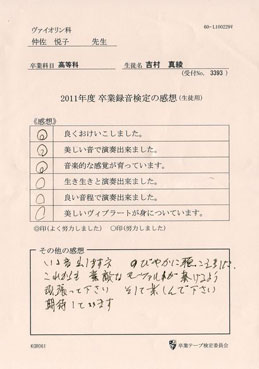 60-L1002299
ヴァイオリン科
仲佐 悦子 先生
卒業科目 高等科 生徒名 吉村 真綾
(受付No. 3393 )
2011年度 卒業録音検定の感想(生徒用)
《感想》
◎ 良くおけいこしました。
◎ 美しい音で演奏出来ました。
◎ 音楽的な感覚が育っています。
○ 生き生きと演奏出来ました。
○ 良い音程で演奏出来ました。
○ 美しいヴィブラートが身についています。
◎印(よく努力しました) ○印(努力しました)
その他の感想
いい音 のびやかに
これからも 素敵な モーツァルトが 弾けるよう
頑張って下さい そして楽しんで下さい
期待しています
卒業テープ検定委員会